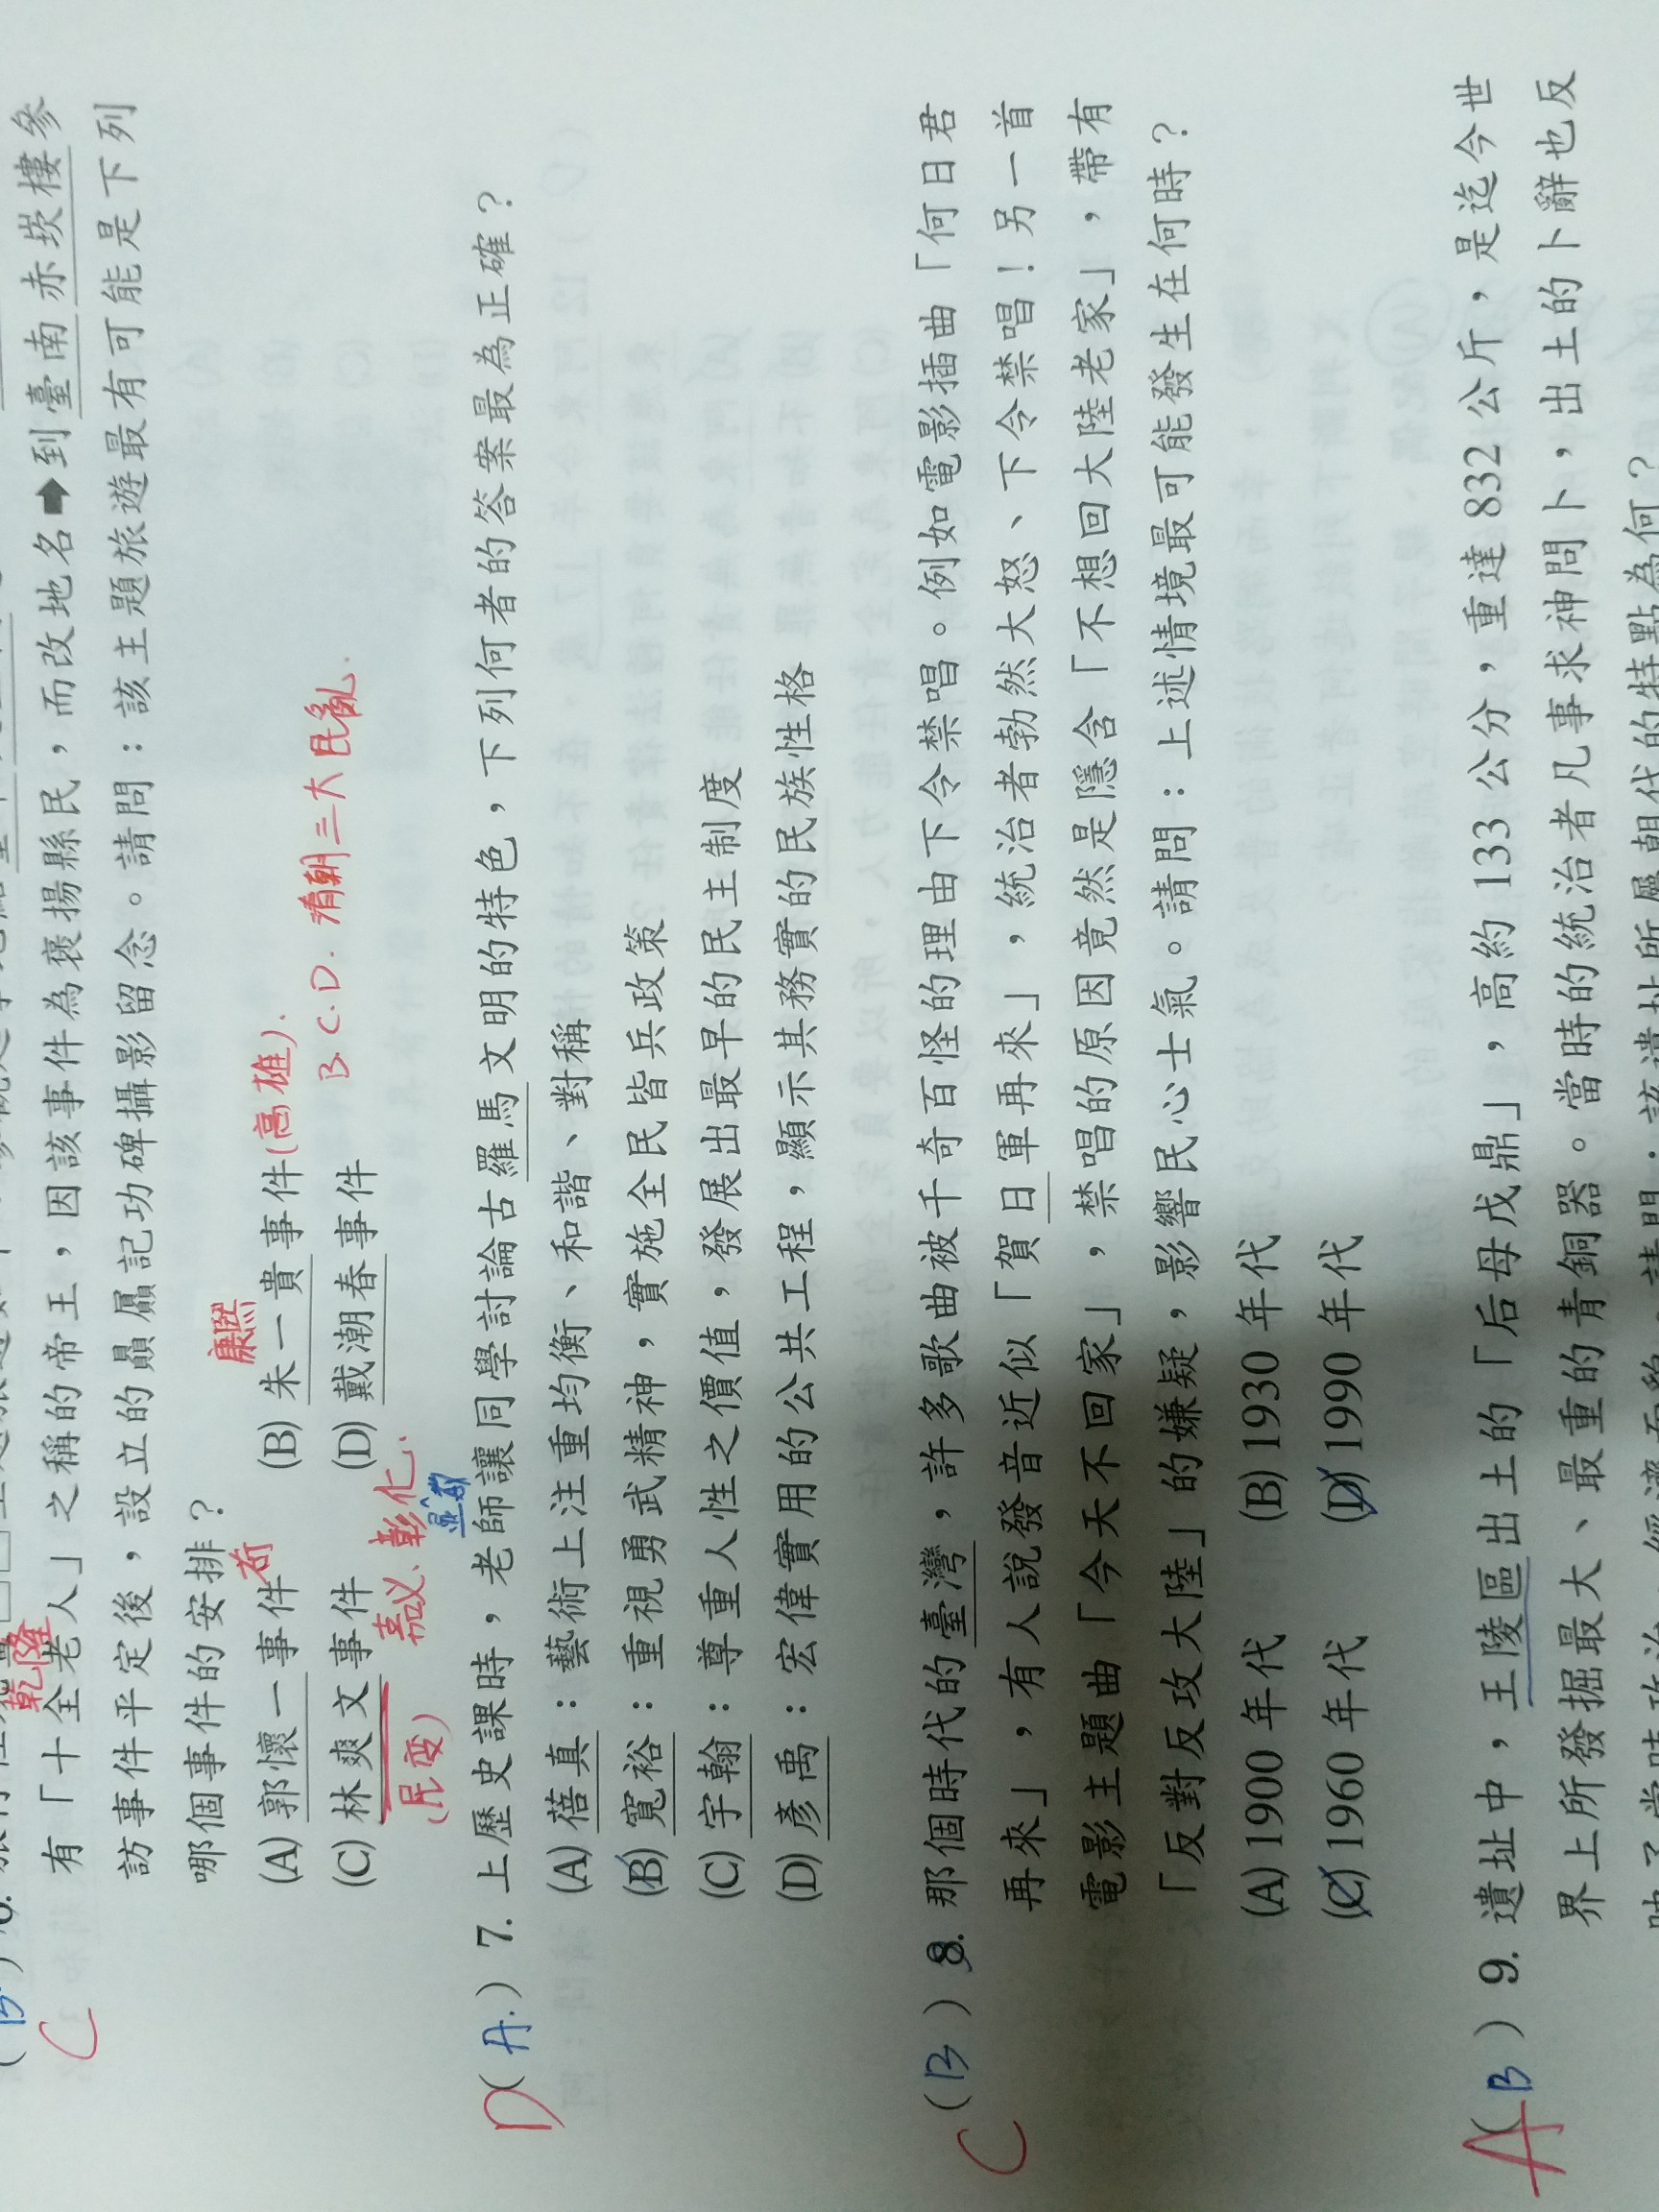 有「十全老人」之稱的帝王,因該事件為褒揚縣民,而改地名➡到臺南赤崁樓參
乾隆
訪事件平定後,設立的贔屭記功碑攝影留念。請問:該主題旅遊最有可能是下列
哪個事件的安排?
康熙
(A) 郭懷一事件 荷 (B) 朱一貴事件(高雄).
(C) 林爽文事件 (D) 戴潮春事件 B C.D. 清朝三大民亂.
(民变) 嘉义、彰化.
C
D(A.) 7. 上歷史課時,老師讓同學討論古羅馬文明的特色,下列何者的答案最為正確?
(A) 蓓真:藝術上注重均衡、和諧、對稱
(B) 寬裕:重視勇武精神,實施全民皆兵政策
(C) 宇翰:尊重人性之價值,發展出最早的民主制度
(D) 彥禹:宏偉實用的公共工程,顯示其務實的民族性格
C(B) 8. 那個時代的臺灣,許多歌曲被千奇百怪的理由下令禁唱。例如電影插曲「何日君
再來」,有人說發音近似「賀日軍再來」,統治者勃然大怒、下令禁唱!另一首
電影主題曲「今天不回家」,禁唱的原因竟然是隱含「不想回大陸老家」,帶有
「反對反攻大陸」的嫌疑,影響民心士氣。請問:上述情境最可能發生在何時?
(A) 1900 年代 (B) 1930 年代
(C) 1960 年代 (D) 1990 年代
A(B) 9. 遺址中,王陵區出土的「后母戊鼎」,高約 133 公分,重達 832 公斤,是迄今世
界上所發掘最大、最重的青銅器。當時的統治者凡事求神問卜,出土的卜辭也反